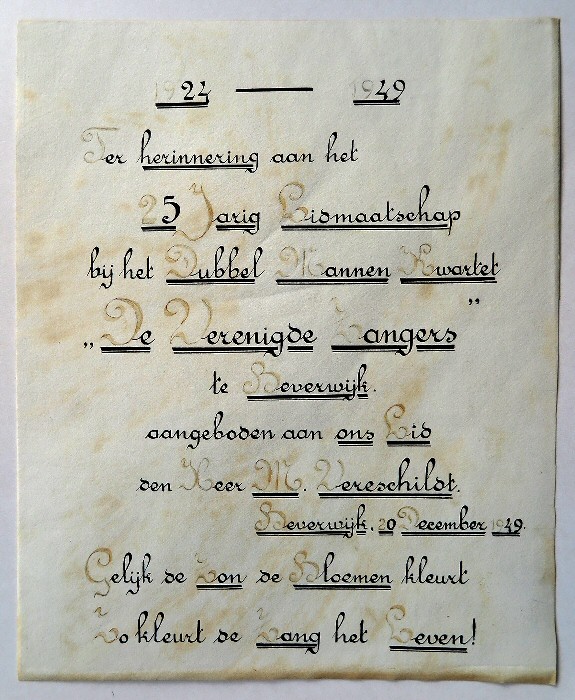 1924 — 1949
Ter herinnering aan het
25 Jarig Lidmaatschap
bij het Dubbel Mannen Kwartet
„De Verenigde Zangers”
te Beverwijk.
aangeboden aan ons Lid
den Heer M. Vereschildt.
Beverwijk. 20 December 1949.
Gelijk de Zon de Bloemen kleurt
Zo kleurt de Zang het Leven!